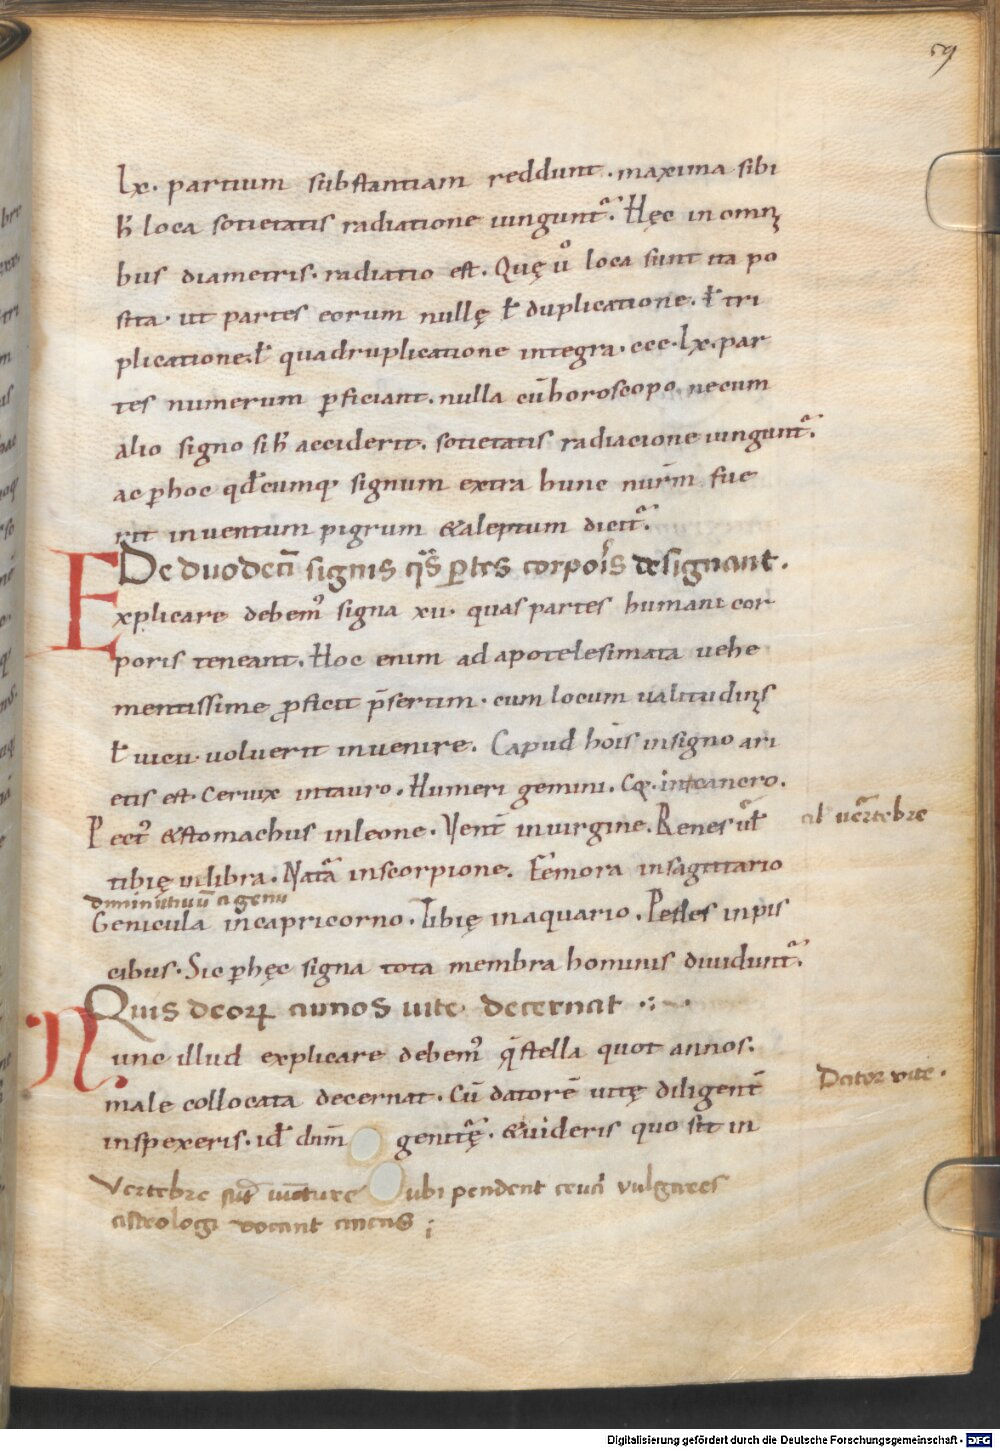 59
lx. partium substantiam reddunt. maxima sibi
h̄ loca sotietatis radiatione iungunt᷑. Hęc in omni
bus diametris. radiatio est. Quę ů loca sunt ita po
sita. ut partes eorum nullę ł duplicatione. ł tri
plicatione. ł quadruplicatione integra. ccc. lx. par
tes numerum ꝑficiant. nulla cū horoscopo nec cum
alio signo si h̄ acciderit. sotietatis radiacione iungunt᷑.
ac ꝑ hoc qđcumq; signum extra hunc nūm fue
rit inventum pigrum & aleptum dicit᷑.
De duodecī signis q̄s ꝑtes corporis designant.
Explicare debem᷒ signa xii. quas partes humani cor
poris teneant. Hoc enim ad apotelesimata uehe
mentissime ꝓficit p̄sertim. cum locum ualitudinis
ł uicii uoluerit invenire. Capud hōis in signo ari
etis est. Ceruix in tauro. Humeri gemini. Cor. in cancro.
Pect᷒ & stomachus in leone. Vent̄ in uirgine. Renes ů ł
al vertebre
tibię in libra. Nat᷑a in scorpione. Femora in sagittario
diminutiuū a genu
Genicula in capricorno. Tibię in aquario. Pedes in pis
cibus. Sic ꝑ hęc signa tota membra hominis diuidunt᷑.
Quis deoꝝ annos uite decernat
Nunc illud explicare debem᷒ q̄ stella quot annos.
male collocata decernat. Cū datorē uitę diligent̄
Dator vite.
inspexeris. id ē dnm̄ geniturę. & uideris quo sit in
Vertebre sūt iuncture ubi pendent cruri vulgares
astrologi vocant ancas ;
Digitalisierung gefördert durch die Deutsche Forschungsgemeinschaft - DFG